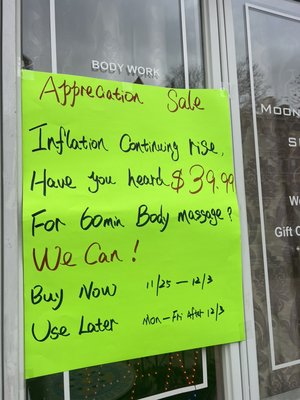 BODY WORK
Appreciation Sale
Inflation Continuing rise,
Have you heard $39.99
For 60min Body massage?
We Can!
Buy Now 11/25 - 12/3
Use Later Mon-Fri After 12/3
MOON
S
We
Gift C